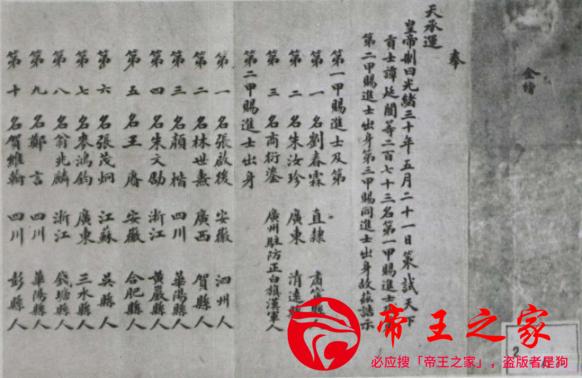 金榜
奉
天承運
皇帝制曰光緒三十年五月二十一日策試天下
貢士譚延闓等二百七十三名第一甲賜進士
第二甲賜進士出身第三甲賜同進士出身故茲誥示
第一甲賜進士及第
第一名劉春霖 直隸 肅
第二名朱汝珍 廣東 清遠
第三名商衍鎏 廣州駐防正白旗漢軍人
第二甲賜進士出身
第一名張啟後 安徽 泗州人
第二名林世燾 廣西 賀縣人
第三名顏楷 四川 華陽縣人
第四名朱文劭 浙江 黃巖縣人
第五名王賡 安徽 合肥縣人
第六名張茂炯 江蘇 吳縣人
第七名麥鴻鈞 廣東 三水縣人
第八名翁兆麟 浙江 錢塘縣人
第九名鄭言 四川 華陽縣人
第十名賀維翰 四川 彭縣人
帝王之家
必应搜「帝王之家」，盗版者是狗